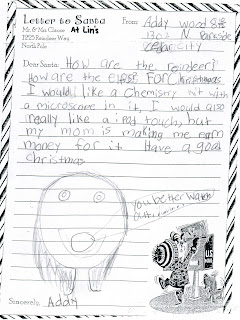 Letter to Santa
From: Addy wood
Mr. & Mrs. Clause At Lin's
1225 Reindeer Way
North Pole
1302 N
cedar city
Dear Santa: How are the reindeer?
How are the elfs? For Christmas
I would like a Chemistry kit with
a microscope in it, I would also
really like a i pod touch, but
my mom is making me earn
money for it. Have a good
Christmas.
you better watch
out
Sincerely, Addy